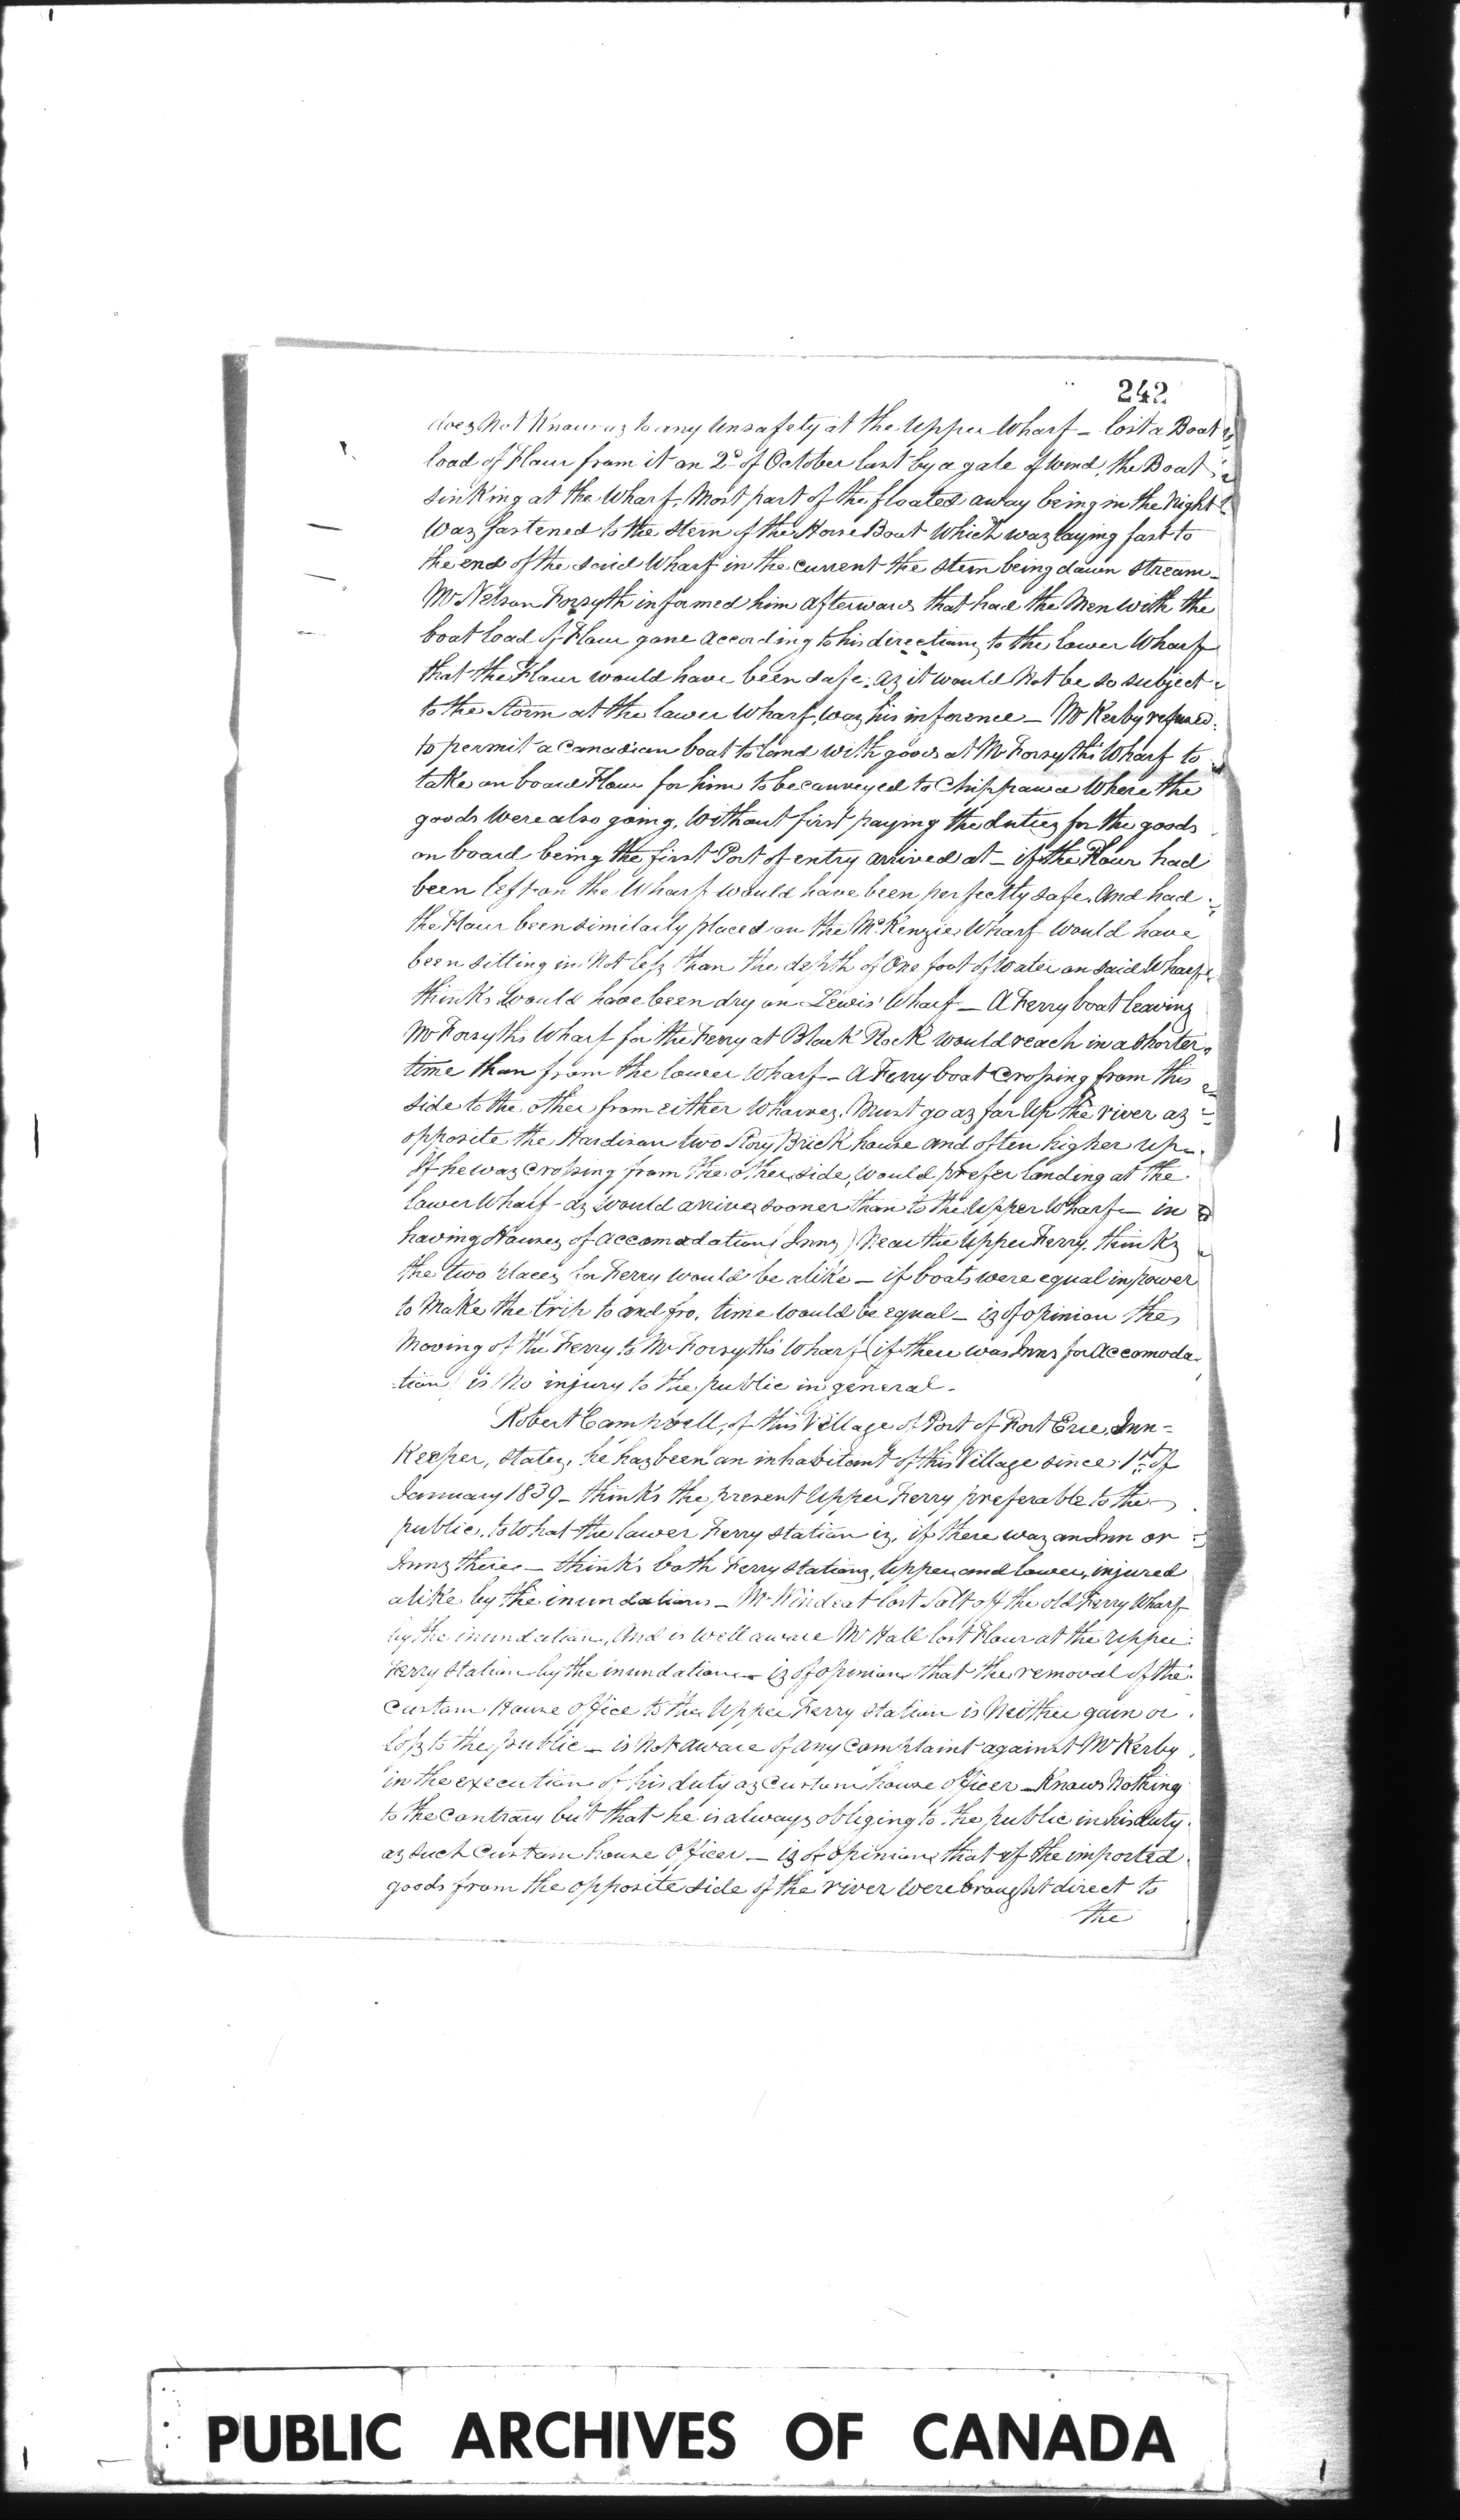 242
does Not Know as to any Unsafety at the Upper Wharf – lost a Boat
load of Flour from it on 2d of October last by a gale of wind, the Boat
sinking at the Wharf, Most part of the floated away being in the Night
Was fastened to the stern of the Horse Boat Which was laying fast to
the end of the said Wharf in the current the stern being down stream –
Mr Nelson Forsyth informed him afterwards that had the Men With the
boat load of Flour gone according to his directions to the lower Wharf
that the Flour would have been safe; as it would Not be so subject
to the storm at the lower Wharf, was his inference – Mr Kerby refused
to permit a Canadian boat to land with goods at Mr Forsyth's Wharf to
take on board Flour for him to be conveyed to Chippawa Where the
goods Were also going, Without first paying the duties for the goods
on board being the first Port of entry arrived at – if the Flour had
been left on the Wharf would have been perfectly safe, And had
the Flour been similarly placed on the McKenzie Wharf would have
been sitting in Not less than the depth of One foot of Water on said Wharf
thinks Would have been dry on Lewis' Wharf – A Ferry boat leaving
Mr Forsyths Wharf for the Ferry at Black Rock would reach in a shorter
time than from the lower Wharf – A Ferry boat Crossing from this
side to the other from either Wharves, Must go as far Up the river as
opposite the Hardison two Story Brick house and often higher Up –
If he was Crossing from the other side, Would prefer landing at the
lower Wharf – as Would arrive sooner than to the Upper Wharf – in
having Houses of accomodation (Inns) Near the Upper Ferry, thinks
the two places for Ferry would be alike – if boats were equal in power
to Make the trip to and fro, time would be equal – is of opinion the
Moving of the Ferry to Mr Forsyth's Wharf (if there was Inns for Accomoda-
tion) is No injury to the public in general –
Robert Campbell, of this Village of Port of Fort Erie, Inn-
Keeper, states, he has been an inhabitant of this Village since 1st of
January 1839 – thinks the present Upper Ferry preferable to the
public, to What the lower Ferry station is, if there was an Inn or
Inns there – thinks both Ferry stations, Upper and lower, injured
alike by the inundations – Mr Windeat lost Salt off the old Ferry Wharf
by the inundation, And is Well aware Mr Hall lost Flour at the Upper
Ferry station by the inundation – is of opinion that the removal of the
Custom House Office to the Upper Ferry station is Neither gain or
loss to the public – is Not aware of any Complaint against Mr Kerby
in the execution of his duty as Custom house officer – Knows Nothing
to the Contrary but that he is always obliging to the public in his duty
as such Custom house Officer – is of opinion that if the imported
goods from the opposite side of the river Were brought direct to
the
PUBLIC ARCHIVES OF CANADA